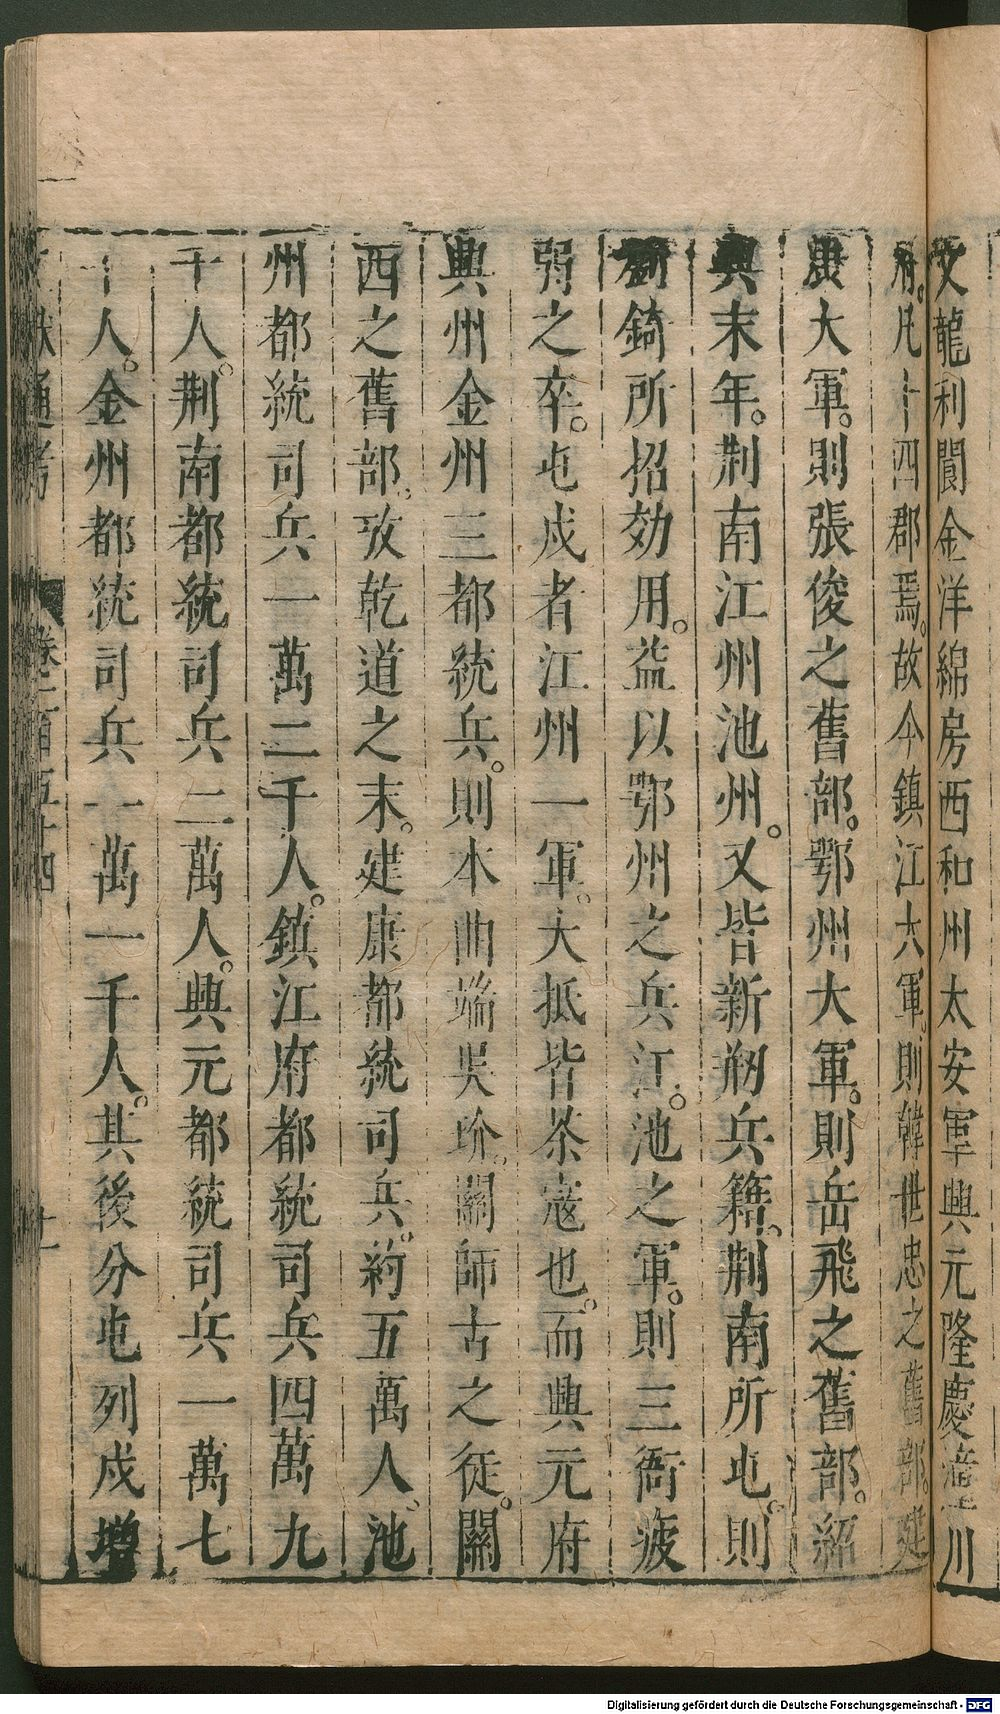 文龍利閬金洋綿房西和州太安軍興元隆慶潼川
府。凡十四郡焉。故今鎮江大軍。則韓世忠之舊部。建
康大軍。則張俊之舊部。鄂州大軍。則岳飛之舊部。紹
興末年。荆南江州池州。又皆新剏兵籍。荆南所屯。則
劉錡所招効用。益以鄂州之兵。江。池之軍。則三衙疲
弱之卒。屯戍者江州一軍。大抵皆茶寇也。而興元府
興州金州三都統兵。則本曲端吳玠。關師古之徒。關
西之舊部。攷乾道之末。建康都統司兵。約五萬人。池
州都統司兵一萬二千人。鎮江府都統司兵四萬九
千人。荆南都統司兵二萬人。興元都統司兵一萬七
千人。金州都統司兵一萬一千人。其後分屯列戍增
文獻通考 卷之一百五十四 十一
Digitalisierung gefördert durch die Deutsche Forschungsgemeinschaft - DFG